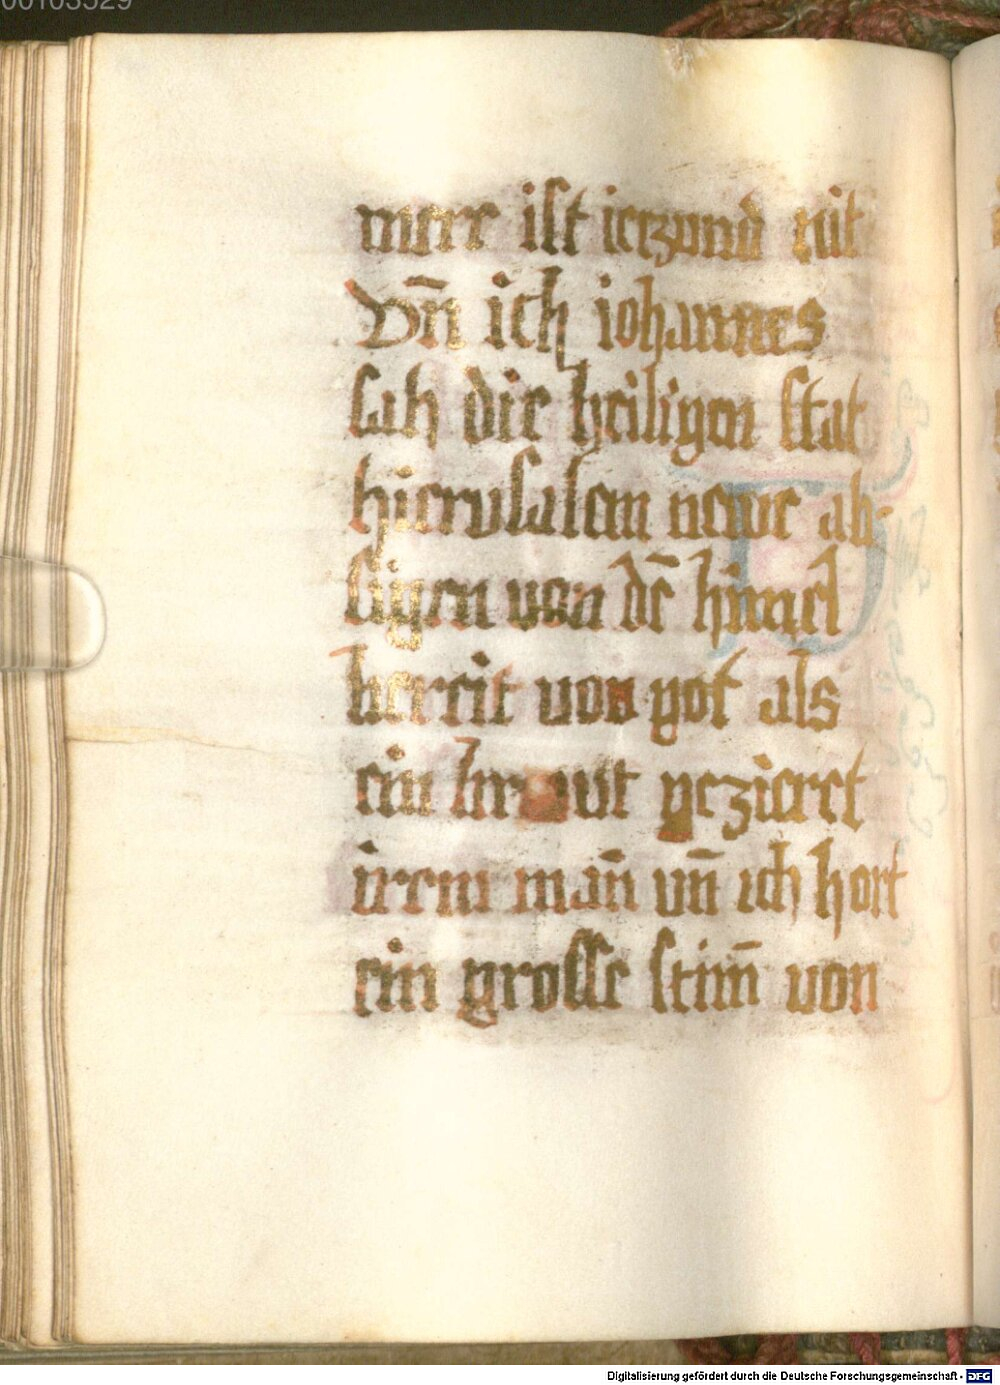 00103529
mere ist ierzund nit
Vn̄ ich iohannes
sah die heiligen stat
hierusalem newe ab-
sigen von dē himel
bereit von got als
ein brawt gezieret
irem man̄ vn̄ ich hort
ein grosse stim̄ von
Digitalisierung gefördert durch die Deutsche Forschungsgemeinschaft - DFG